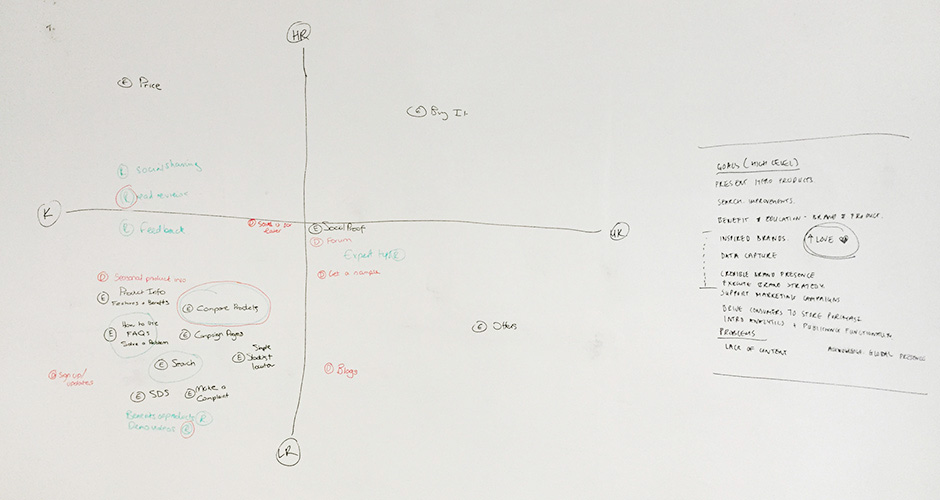 HR
E Price
E Buy It
R Social sharing
R read reviews
K
R Feedback
UK
E Social Proof
D Forum
Expert tips E
D Get a sample
D Seasonal product info
E Product Info
Features + Benefits
E Compare Products
E How to Use
FAQs
Solve a Problem
E Campaign Pages
E Search
E Simple
Stockist
locator
E Offers
Sign up/
updates
D Blogs
E SDS
E Make a
Complaint
R
Demo videos R
LR
GOALS (HIGH LEVEL)
PRESENT HERO PRODUCTS.
SEARCH IMPROVEMENTS.
BENEFIT & EDUCATION - BRAND & PRODUCT.
INSPIRED BRANDS.
↑ LOVE
DATA CAPTURE
CREDIBLE BRAND PRESENCE
EXECUTE BRAND STRATEGY
SUPPORT MARKETING CAMPAIGNS
DRIVE CONSUMERS TO STORE PURCHASE
INTRO ANALYTICS + PUBLISHING FUNCTIONALITY
PROBLEMS
LACK OF CONTENT
ACKNOWLEDGE GLOBAL PRESENCE